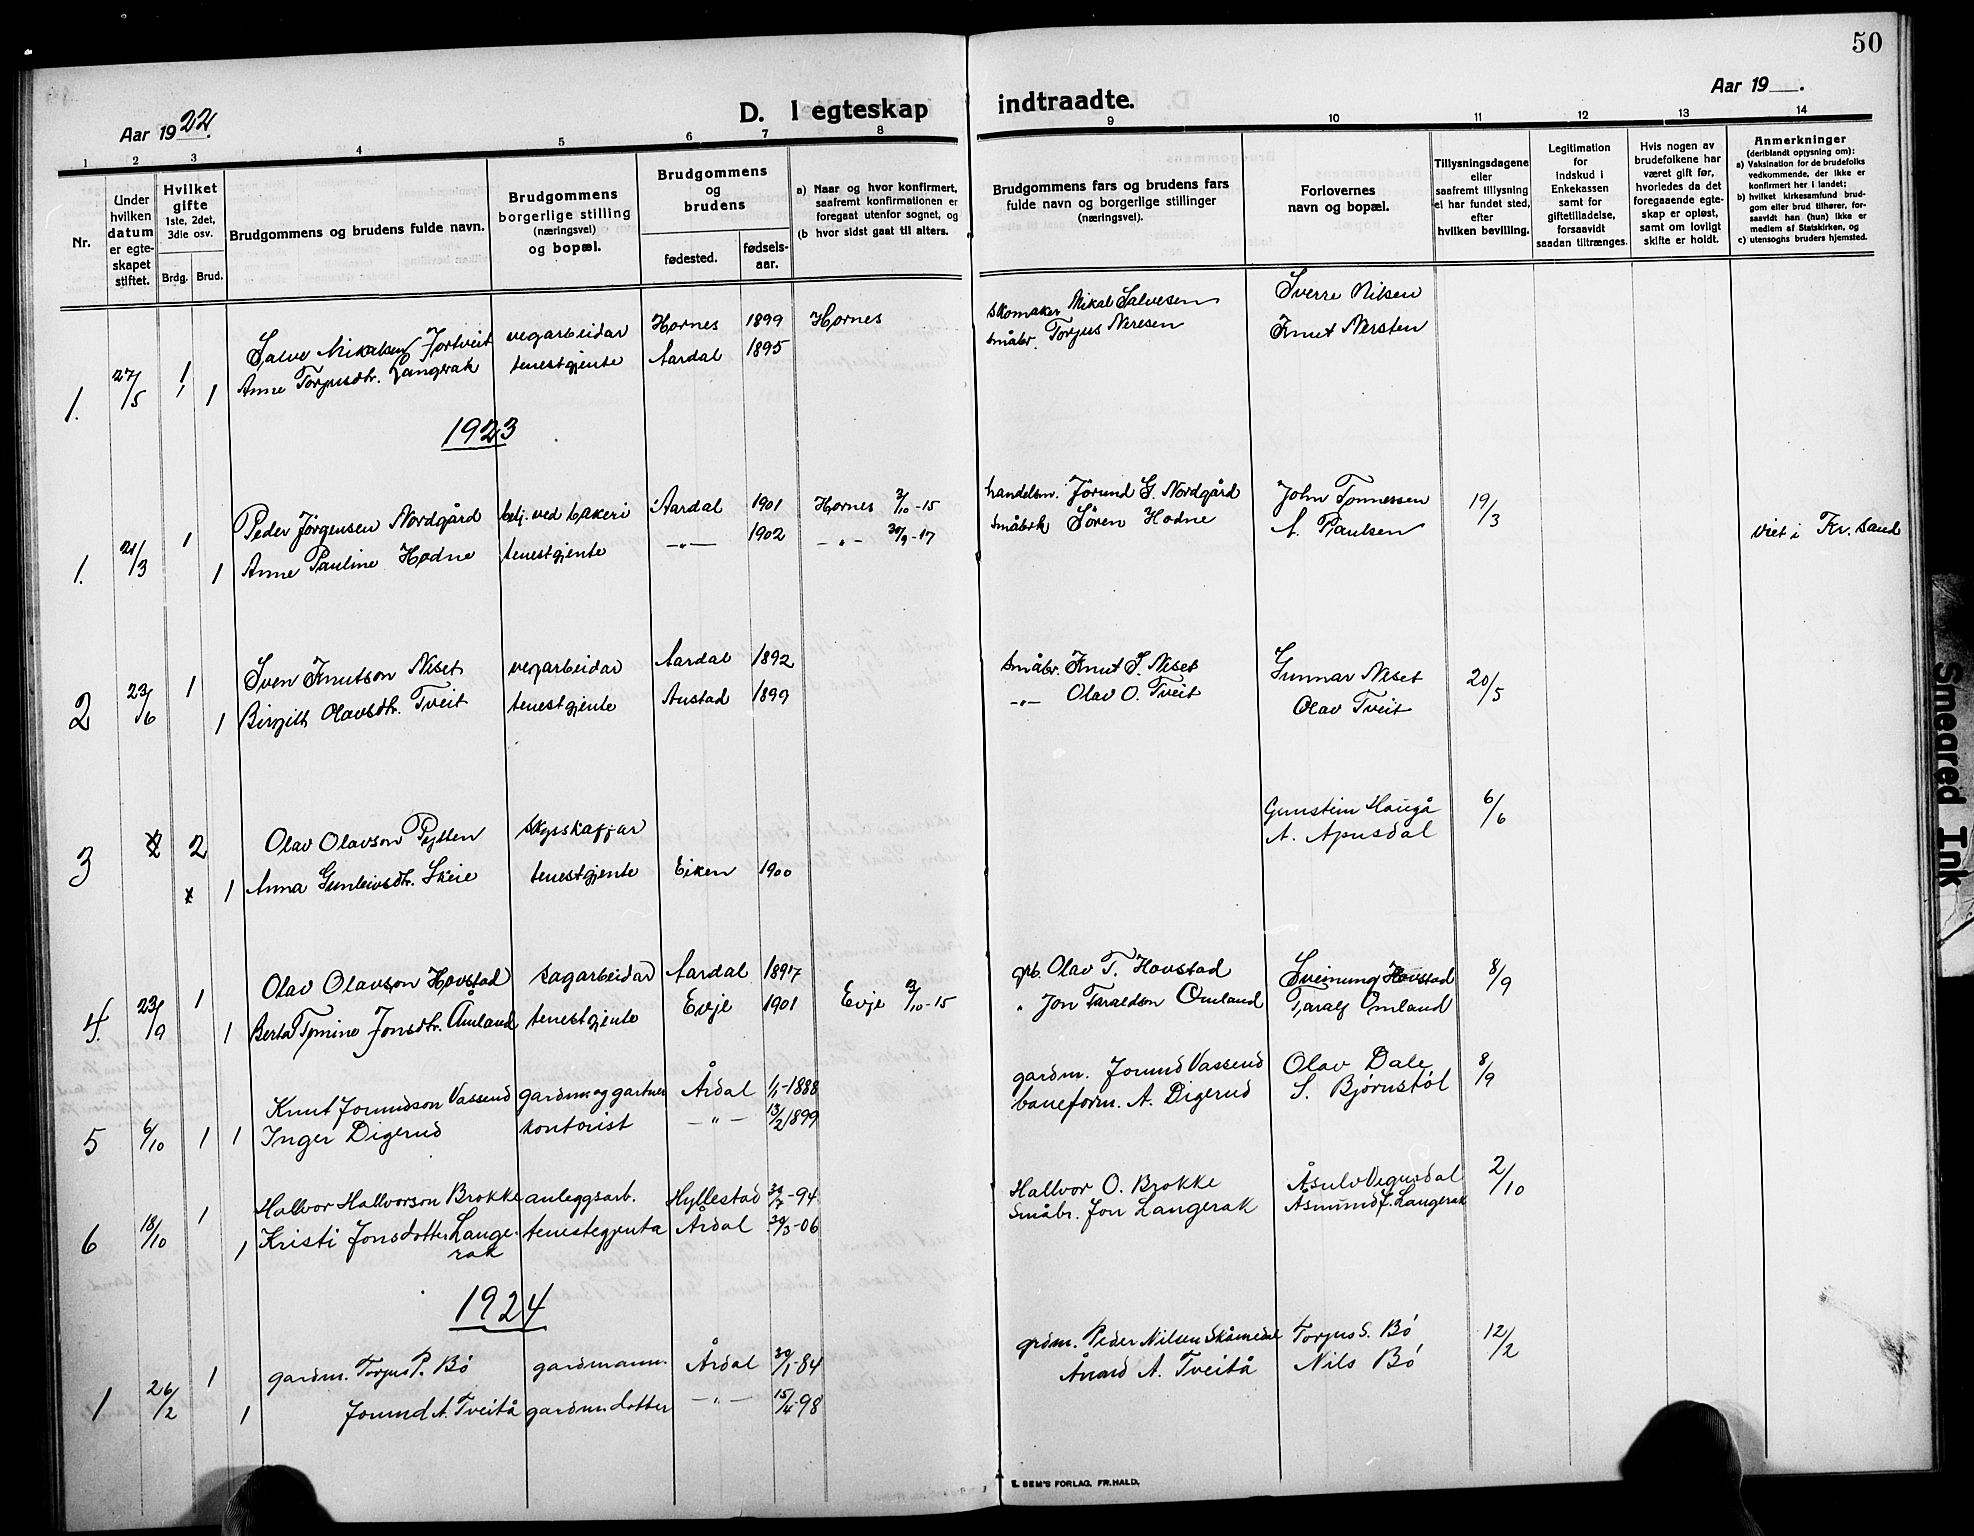 50
Aar 1922.
D. I egteskap indtraadte.
Aar 19 .
1 2 3 4 5 6 7 8 9 10 11 12 13 14
Nr.
Under hvilken datum er egteskapet stiftet.
Hvilket gifte 1ste, 2det, 3die osv.
Brdg. Brud.
Brudgommens og brudens fulde navn.
Brudgommens borgerlige stilling (næringsvei) og bopæl.
Brudgommens og brudens
fødested. fødselsaar.
a) Naar og hvor konfirmert, saafremt konfirmationen er foregaat utenfor sognet, og
(b hvor sidst gaat til alters.
Brudgommens fars og brudens fars fulde navn og borgerlige stillinger (næringsvei).
Forlovernes navn og bopæl.
Tillysningsdagene eller saafremt tillysning ei har fundet sted, efter hvilken bevilling.
Legitimation for indskud i Enkekassen samt for giftetilladelse, forsaavidt saadan tiltrænges.
Hvis nogen av brudefolkene har været gift før, hvorledes da det foregaaende egteskap er opløst, samt om lovligt skifte er holdt.
Anmerkninger (deriblandt opjysning om):
a) Vaksination for de brudefolks vedkommende, der ikke er konfirmert her i landet;
b) hvilket kirkesamfund brudgom eller brud tilhører, forsaavidt han (hun) ikke er medlem af Statskirken, og
c) utensogns bruders hjemsted.
1. 27/5 1 Salve Mikalsen Fortveit vegarbeidar Hornes 1899 Hornes skomaker Mikal Salvesen Sverre Nilsen
1 1 Anne Torjusdtr. Langerak tenestgjente Aardal 1895 småbr. Torjus Neresen Knut Nersten
1923
1. 21/3 1 Peder Jörgensen Nordgård betj. ved bakeri Aardal 1901 Hornes 3/10-15 handelsm. Jörund G. Nordgård John Tønnessen 19/3
1 Anne Pauline Hodne tenestgjente -"- 1902 -"- 30/9-17 småbrk Sören Hodne A. Paulsen viet i Kr. sand
2 23/6 1 Sven Knutson Neset vegarbeidar Aardal 1892 småbr. Knut S. Neset Gunnar Neset 20/5
1 Birgitt Olavsdtr. Tveit tenestgjente Austad 1899 -"- Olav O. Tveit Olav Tveit
3 2 Olav Olavson Pytten skysskaffar Gunstein Haugå 6/6
1 Anna Gunleivsdtr. Skeie tenestgjente Eiken 1900 A. Apusdal
4. 23/9 1 Olav Olavson Hovstad sagarbeidar Aardal 1897 gb. Olav T. Hovstad Sveinung Hovstad 8/9
1 Berta Tomine Jonsdtr. Åmland tenestgjente Evje 1901 Evje 3/10-15 " Jon Taraldson Omland Taralf Omland
5 6/10 1 Knut Jorundson Vassend gardm. og gartner Årdal 1/1-1888 gardm. Jorund Vassend Olav Dale 8/9
1 Inger Digerud kontorist -"- 13/2 1899 baneform. A. Digerud S. Bjørnstøl
6 18/10 1 Hallvor Hallvorson Brokke anleggsarb. Hyllestad 30/7-94 Hallvor O. Brokke Åsulv Vegusdal 2/10
1 Kristi Jonsdotter Lange- tenestegjenta Årdal 30/3-06 Småbr. Jon Langerak Åsmund J. Langerak
rak
1924
1 26/2 1 gardm. Torjus P. Bø gardmann Årdal 30/1-84 grdm. Peder Nilsen Skåmedal Torjus S. Bø 12/2
1 Jorund A. Tveitå gardm. dotter -"- 15/4-98 Ånard A. Tveitå Nils Bø
E. SEM'S FORLAG, FR.HALD.
Smeared Ink